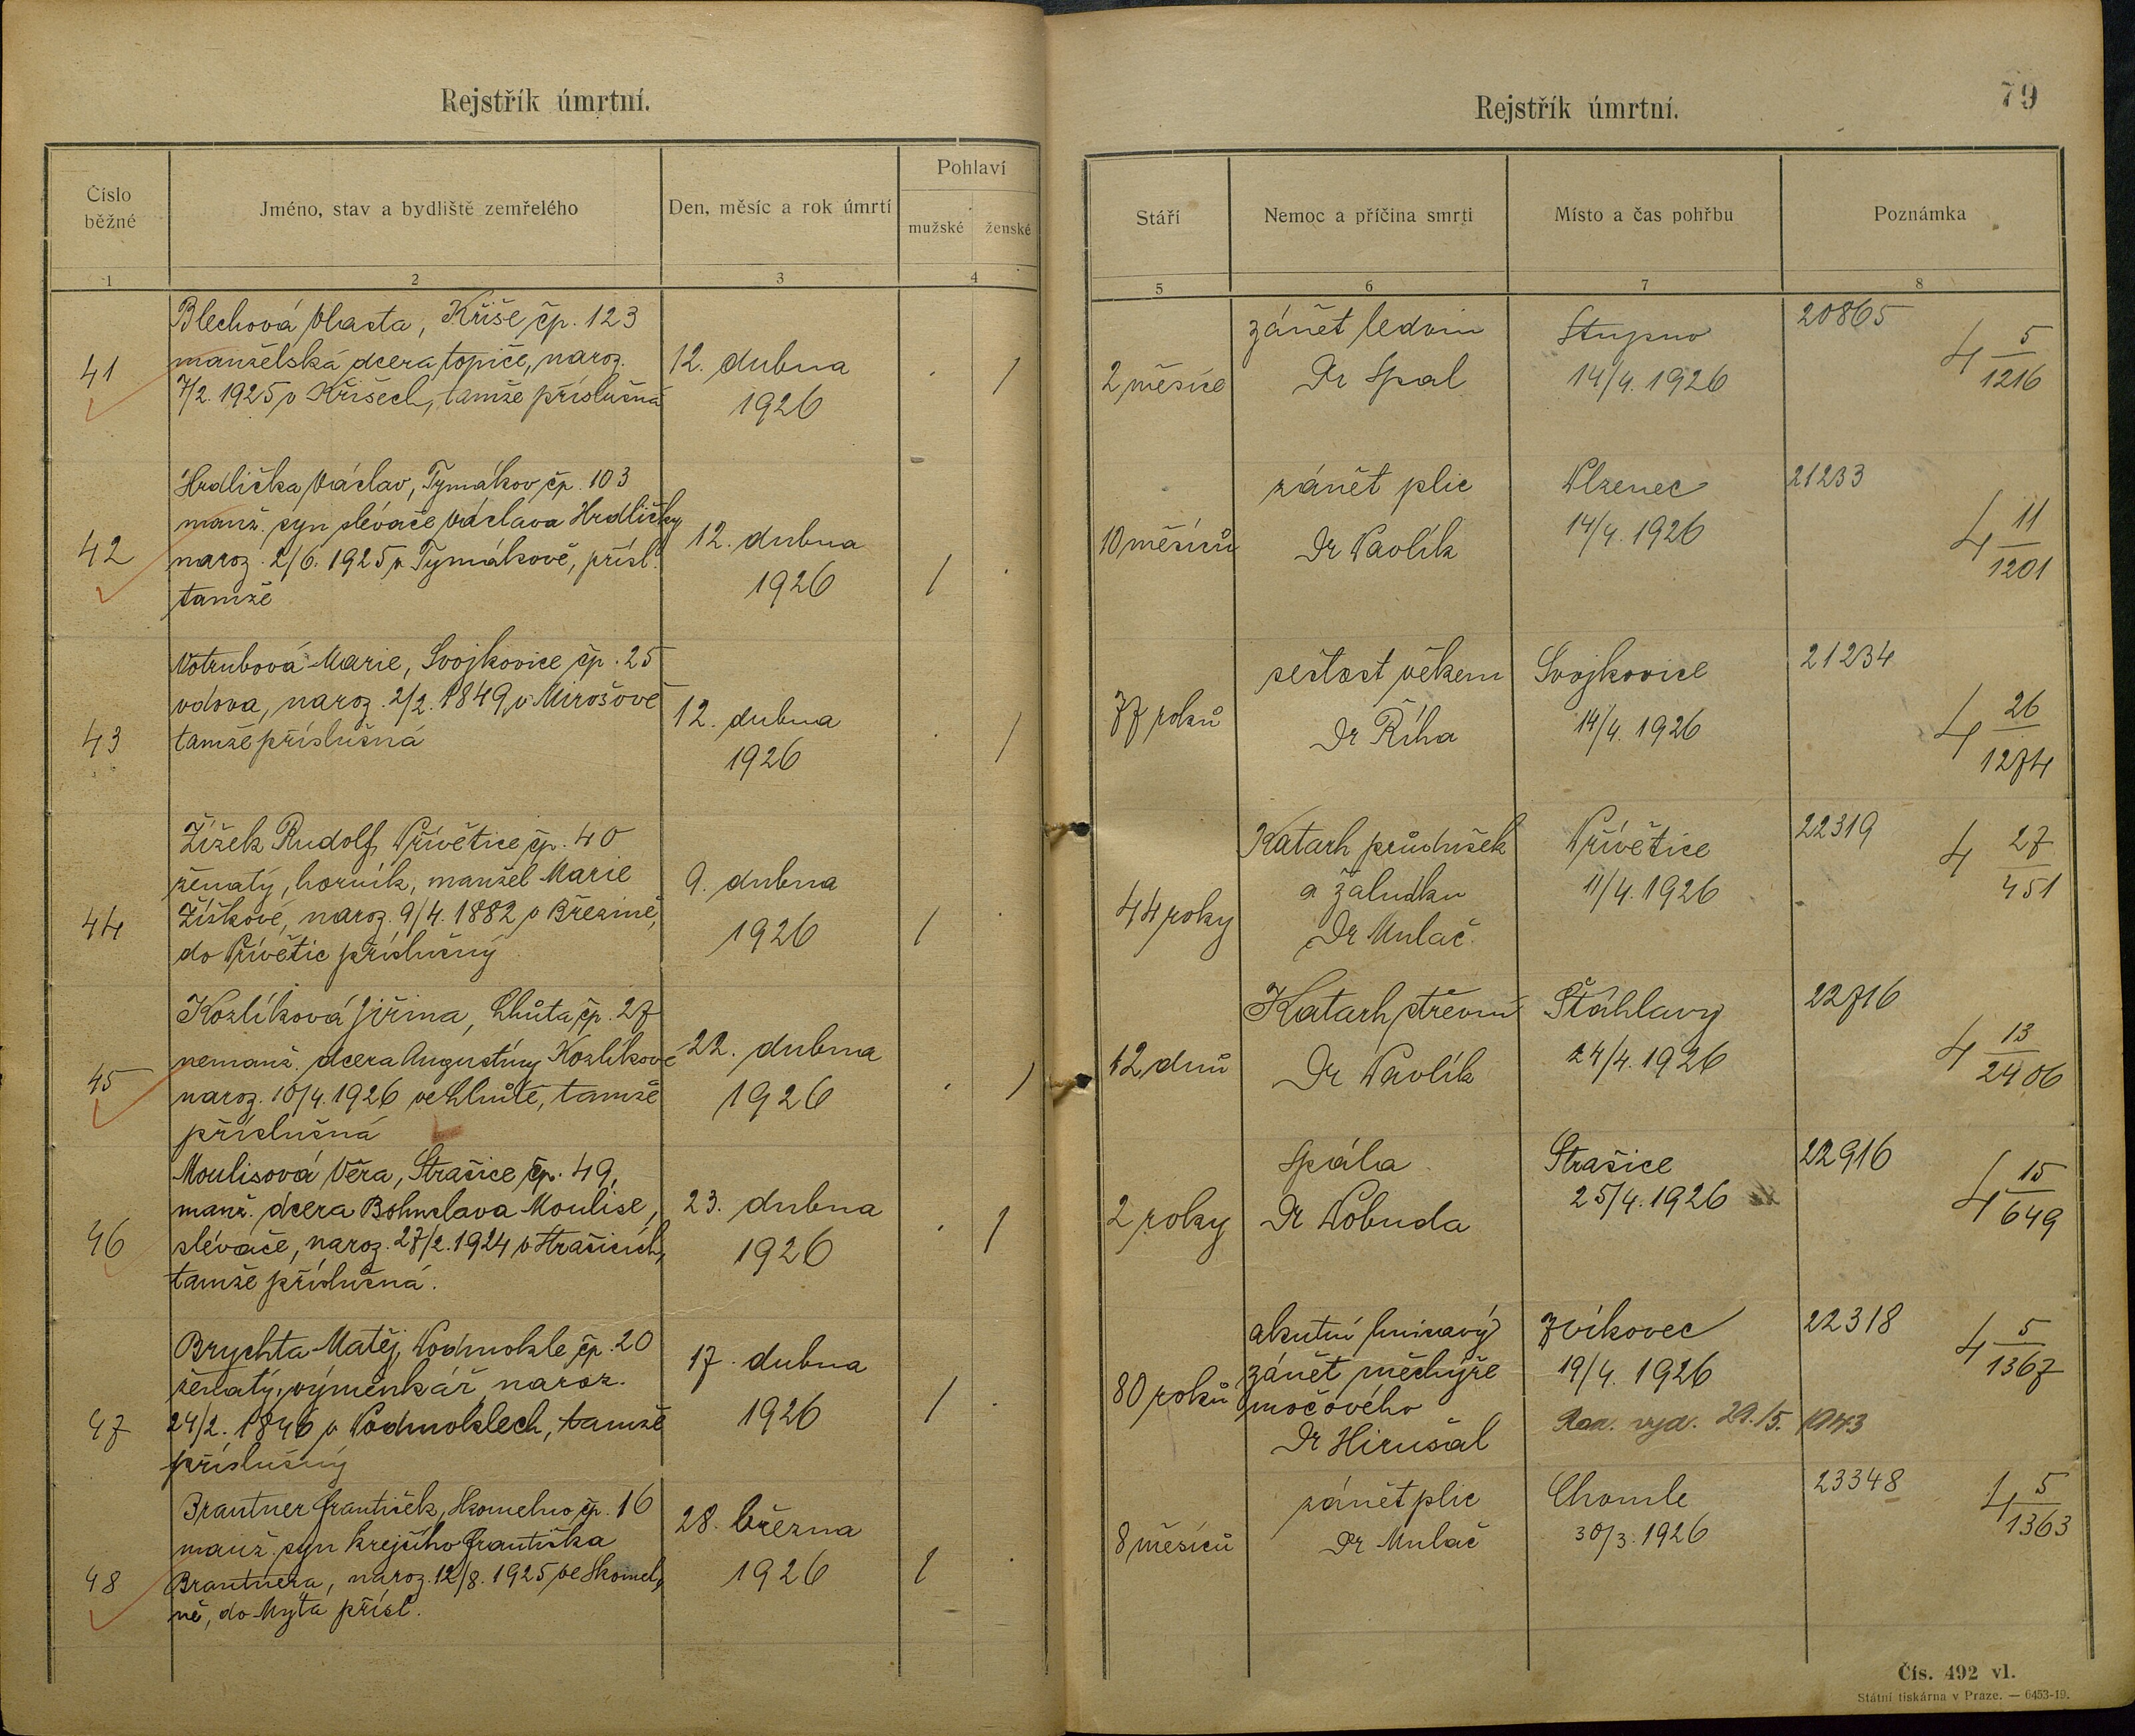 Rejstřík úmrtní.
Číslo běžné
Jméno, stav a bydliště zemřelého
Den, měsíc a rok úmrtí
Pohlaví
mužské
ženské
1
2
3
4
41
Blechová Vlasta, Kříše čp. 123
manželská dcera topiče, naroz.
7/2. 1925 v Kříšech, tamže příslušná
12. dubna
1926
/
42
Hrdlička Václav, Tymákov čp. 103
manž. syn slévače Václava Hrdličky
naroz. 2/6. 1925 v Tymákově, přísl.
tamže
12. dubna
1926
/
43
Votrubová Marie, Svojkovice čp. 25
vdova, naroz. 2/2. 1849 v Mirošově
tamže příslušná
12. dubna
1926
/
44
Žížek Rudolf, Přívětice čp. 40
ženatý, horník, manžel Marie
Žížkové, naroz. 9/4. 1882 v Březině,
do Přívětic příslušný
9. dubna
1926
/
45
Kozlíková Jiřina, Lhůta čp. 27
nemanž. dcera Augustiny Kozlíkové
naroz. 10/4. 1926 ve Lhůtě, tamže
příslušná
22. dubna
1926
/
46
Moulisová Věra, Strašice čp. 49,
manž. dcera Bohuslava Moulise,
slévače, naroz. 27/2. 1924 v Strašicích,
tamže příslušná.
23. dubna
1926
/
47
Brychta Matěj, Podmokle čp. 20
ženatý, výměnkář, naroz.
24/2. 1846 v Podmoklech, tamže
příslušný
17. dubna
1926
/
48
Brantner František, Skomelno čp. 16
manž. syn krejčího Františka
Brantnera, naroz. 12/8. 1925 ve Skomel,
ně, do Mýta přísl.
28. března
1926
/
Rejstřík úmrtní.
79
Stáří
Nemoc a příčina smrti
Místo a čas pohřbu
Poznámka
5
6
7
8
2 měsíce
zánět ledvin
Dr Spal
Stupno
14/4. 1926
20865
4 5/1216
10 měsíců
zánět plic
Dr Pavlík
Plzenec
14/4. 1926
21233
4 11/1201
77 roků
sešlost věkem
Dr Říha
Svojkovice
14/4. 1926
21234
4 26/1274
44 roky
Katarh průdušek
a žaludku
Dr Mulač
Přívětice
11/4. 1926
22319
4 27/451
12 dnů
Katarh střevní
Dr Pavlík
Šťáhlavy
24/4. 1926
22716
4 13/2406
2 roky
Spála
Dr Pobuda
Strašice
25/4. 1926
22916
4 15/649
80 roků
akutní hnisavý
zánět měchýře
močového
Dr Hirušal
Zvíkovec
19/4. 1926
22318
4 5/1367
vyd. 29./5. 1943
8 měsíců
zánět plic
Dr Mulač
Chomle
30/3. 1926
23348
4 5/1363
Čís. 492 vl.
Státní tiskárna v Praze. — 6453-19.